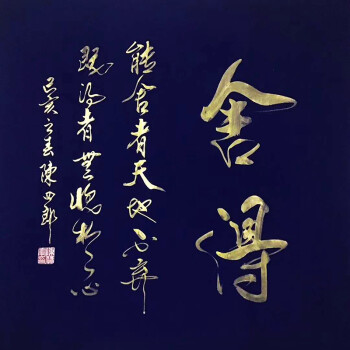 舍得
能舍者天地不弃
既得者無愧於心
己亥之春陳四郎